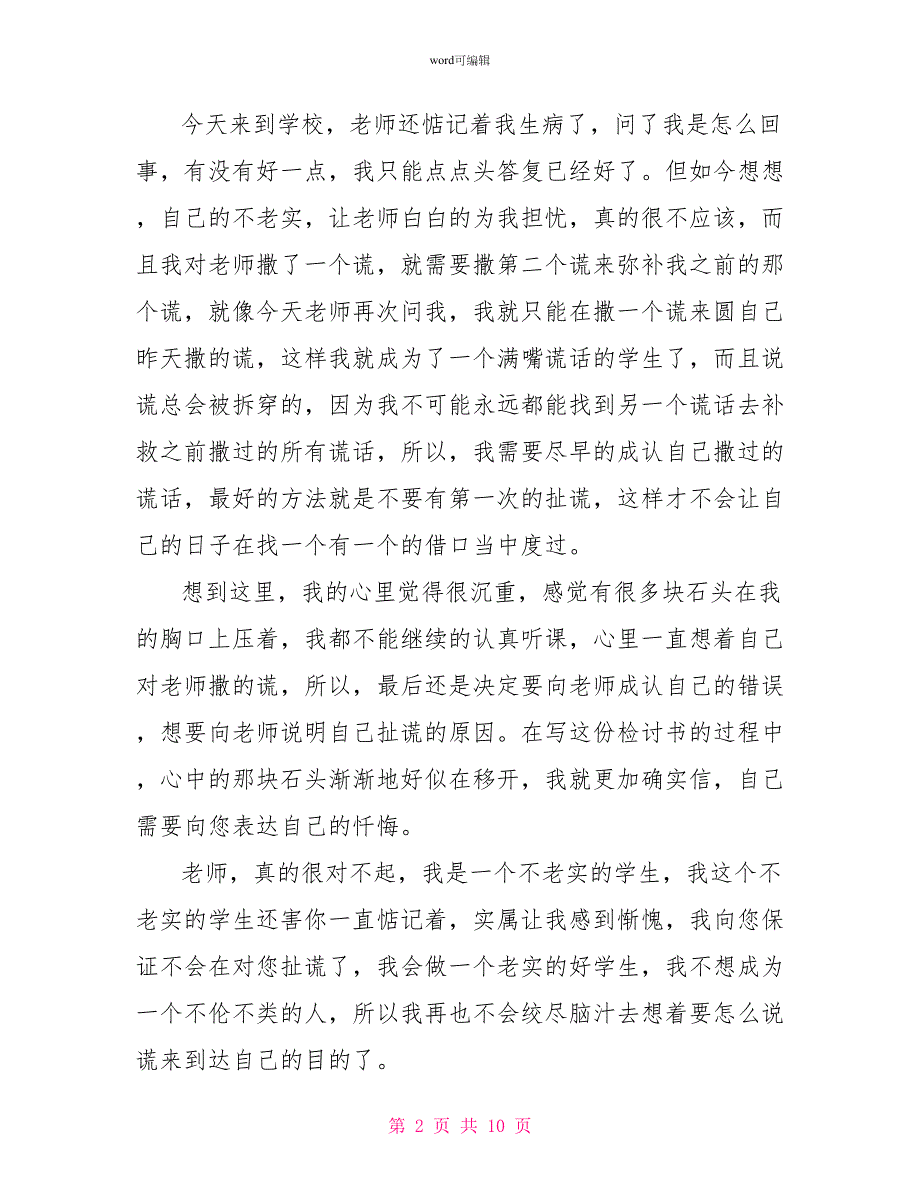 word可编辑
今天来到学校，老师还惦记着我生病了，问了我是怎么回
事，有没有好一点，我只能点点头答复已经好了。但如今想想
，自己的不老实，让老师白白的为我担忧，真的很不应该，而
且我对老师撒了一个谎，就需要撒第二个谎来弥补我之前的那
个谎，就像今天老师再次问我，我就只能在撒一个谎来圆自己
昨天撒的谎，这样我就成为了一个满嘴谎话的学生了，而且说
谎总会被拆穿的，因为我不可能永远都能找到另一个谎话去补
救之前撒过的所有谎话，所以，我需要尽早的成认自己撒过的
谎话，最好的方法就是不要有第一次的扯谎，这样才不会让自
己的日子在找一个有一个的借口当中度过。
想到这里，我的心里觉得很沉重，感觉有很多块石头在我
的胸口上压着，我都不能继续的认真听课，心里一直想着自己
对老师撒的谎，所以，最后还是决定要向老师成认自己的错误
，想要向老师说明自己扯谎的原因。在写这份检讨书的过程中
，心中的那块石头渐渐地好似在移开，我就更加确实信，自己
需要向您表达自己的忏悔。
老师，真的很对不起，我是一个不老实的学生，我这个不
老实的学生还害你一直惦记着，实属让我感到惭愧，我向您保
证不会在对您扯谎了，我会做一个老实的好学生，我不想成为
一个不伦不类的人，所以我再也不会绞尽脑汁去想着要怎么说
谎来到达自己的目的了。
第 2 页 共 10 页